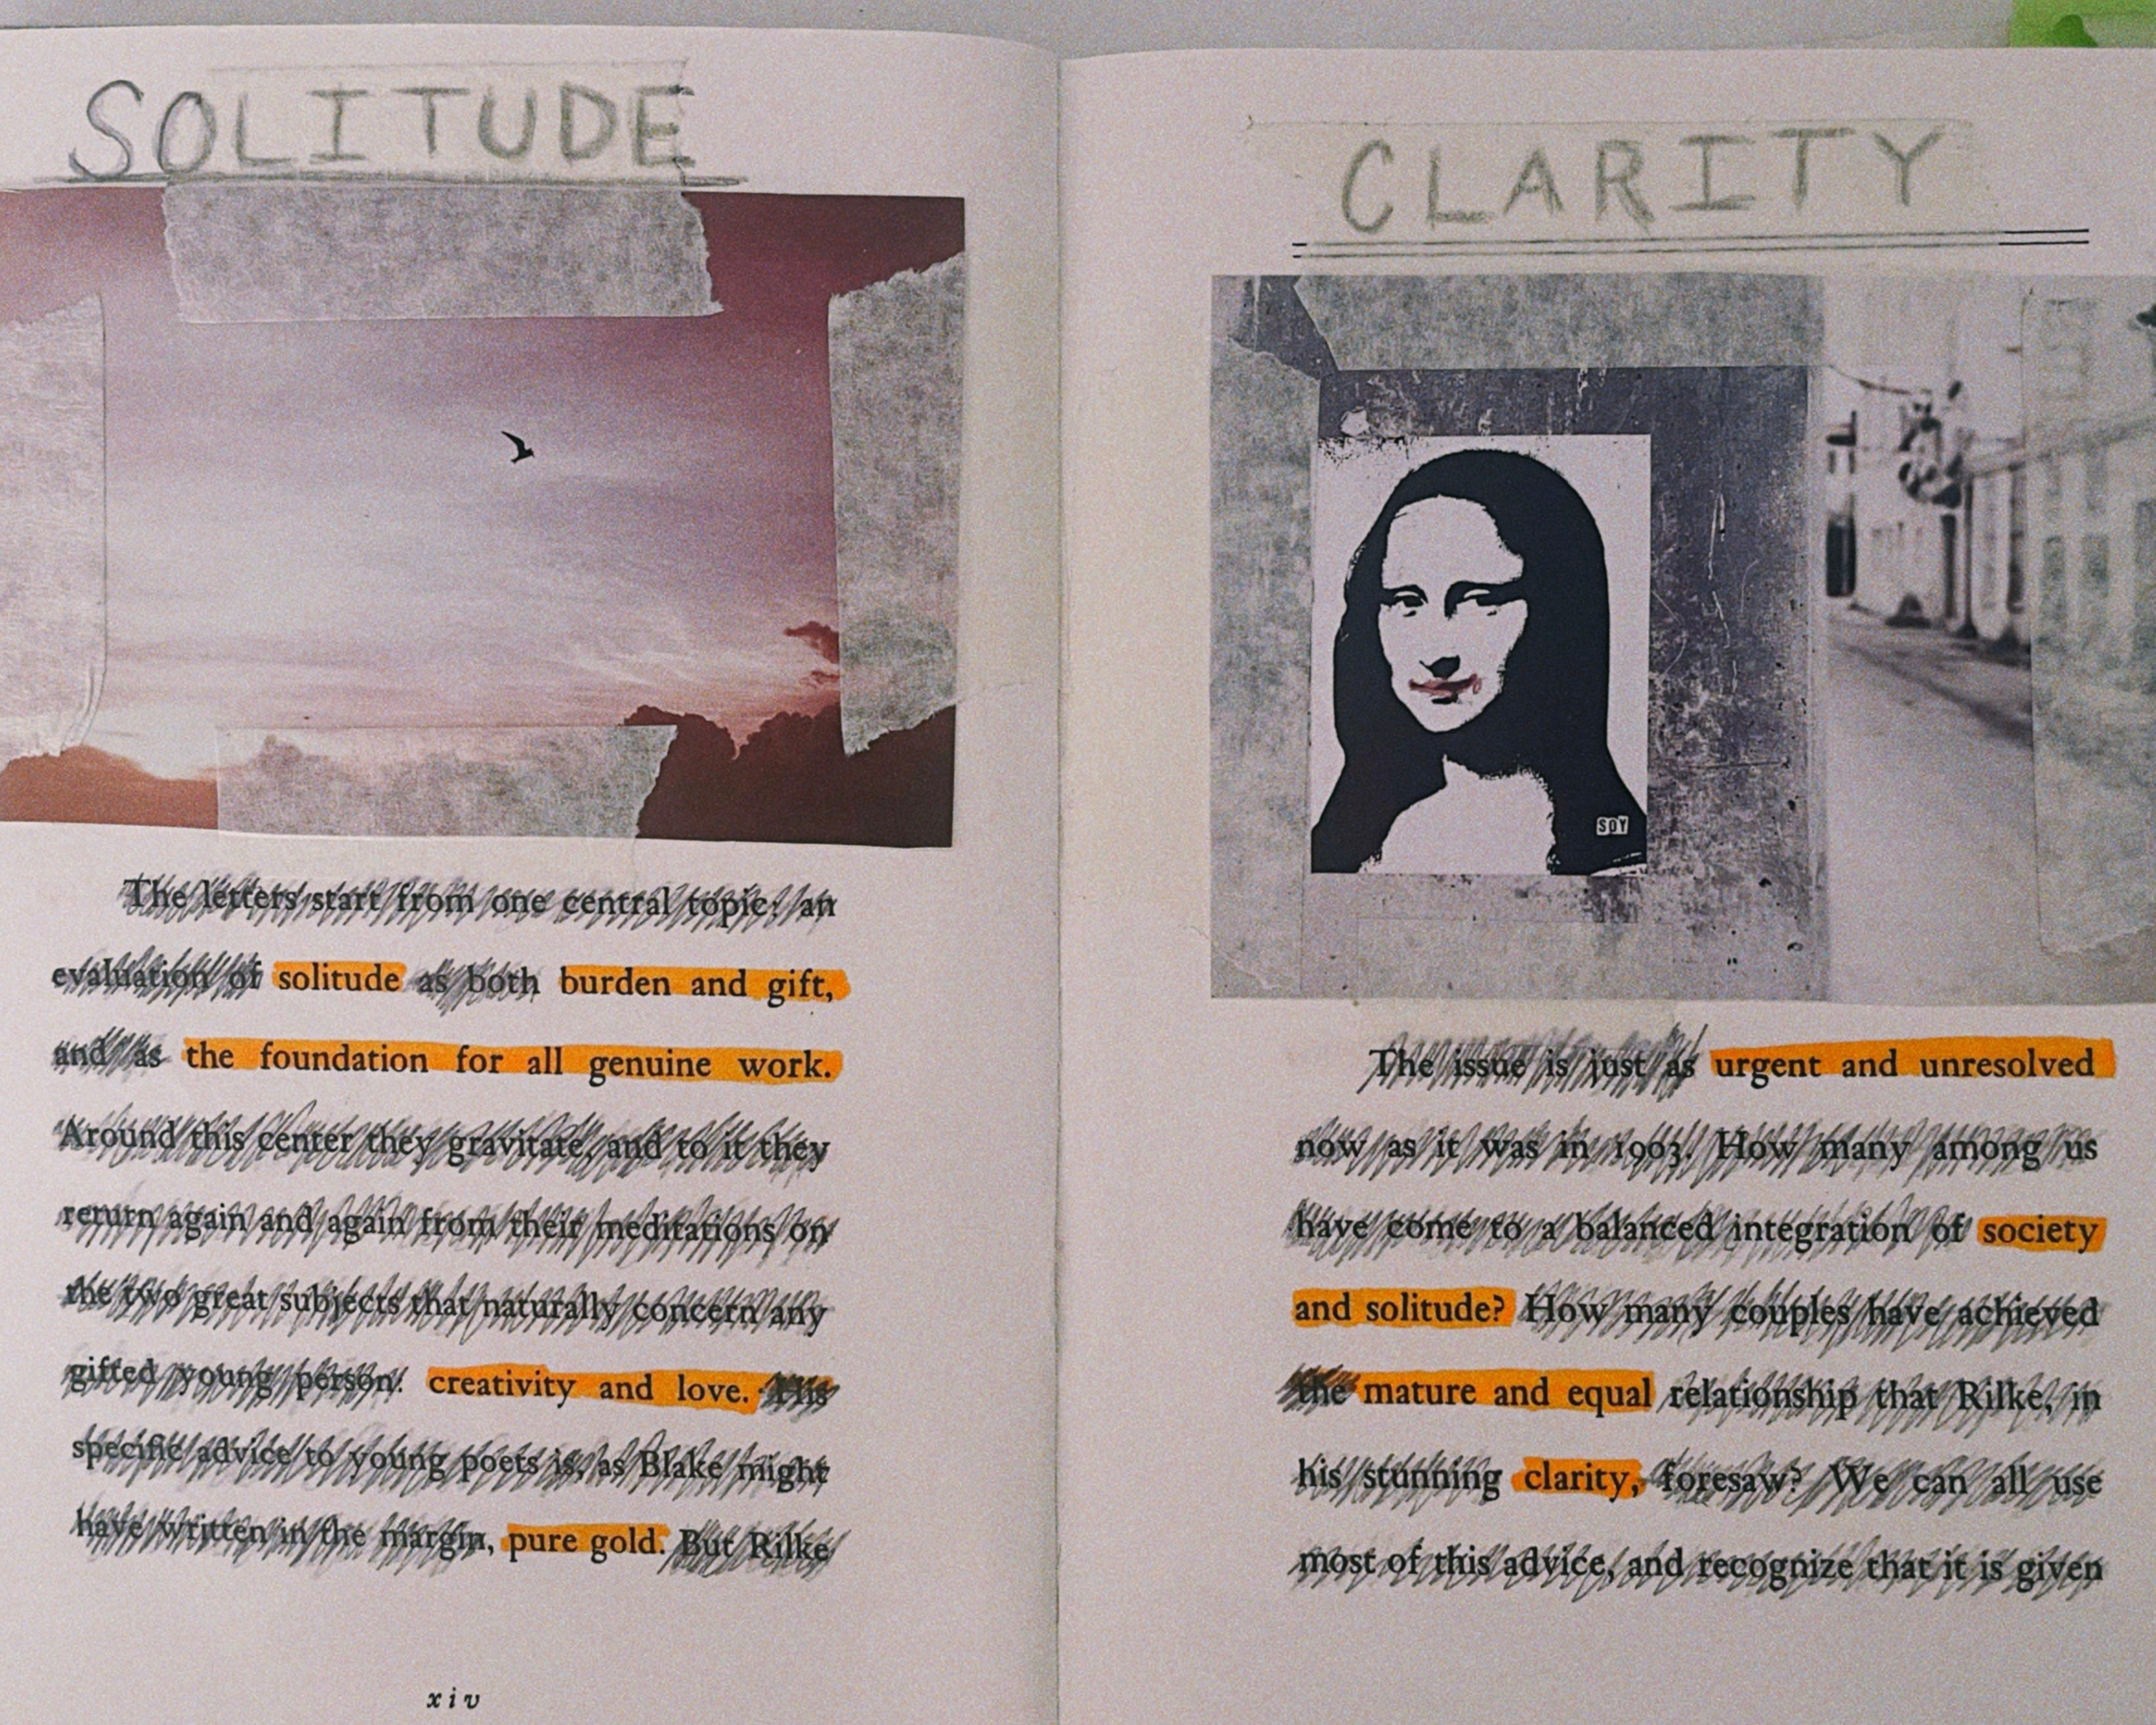 SOLITUDE
The letters start from one central topic: an
evaluation of solitude as both burden and gift,
and as the foundation for all genuine work.
Around this center they gravitate, and to it they
return again and again from their meditations on
the two great subjects that naturally concern any
gifted young person: creativity and love. His
specific advice to young poets is, as Blake might
have written in the margin, pure gold. But Rilke
xiv
CLARITY
SOY
The issue is just as urgent and unresolved
now as it was in 1903. How many among us
have come to a balanced integration of society
and solitude? How many couples have achieved
the mature and equal relationship that Rilke, in
his stunning clarity, foresaw? We can all use
most of this advice, and recognize that it is given